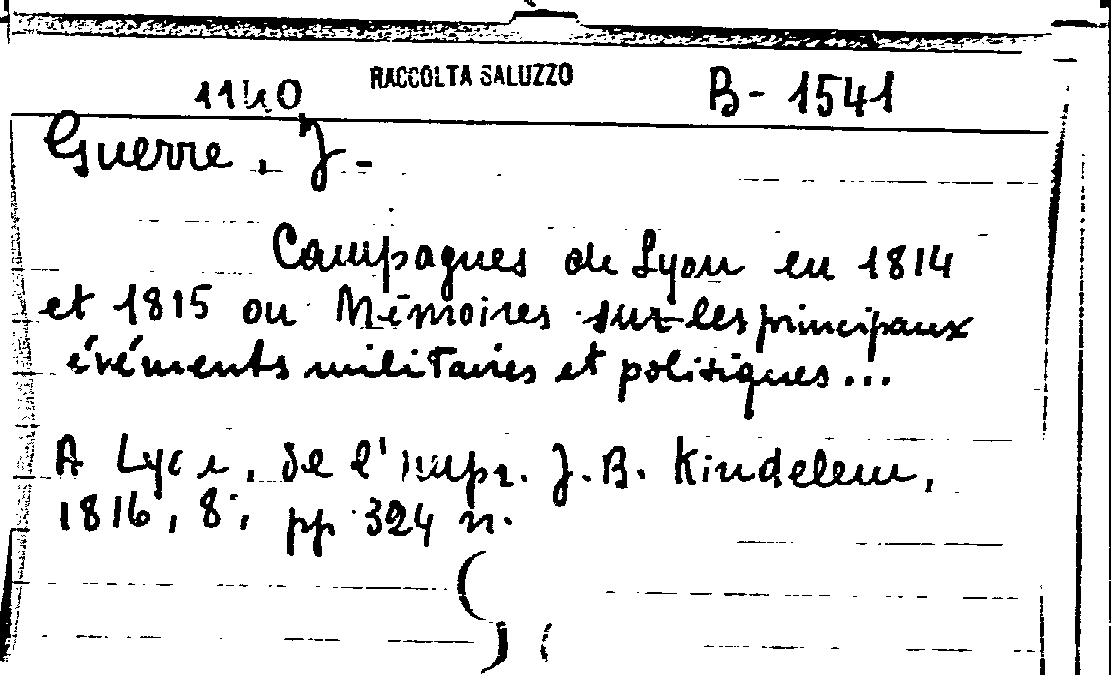 1140 RACCOLTA SALUZZO B- 1541
Guerre, J-
Campagnes de Lyon en 1814
et 1815 ou Mémoires sur les principaux
événements militaires et politiques...
A Lyon, de l'Impr. J. B. Kindelem,
1816, 8°, pp. 324 n.